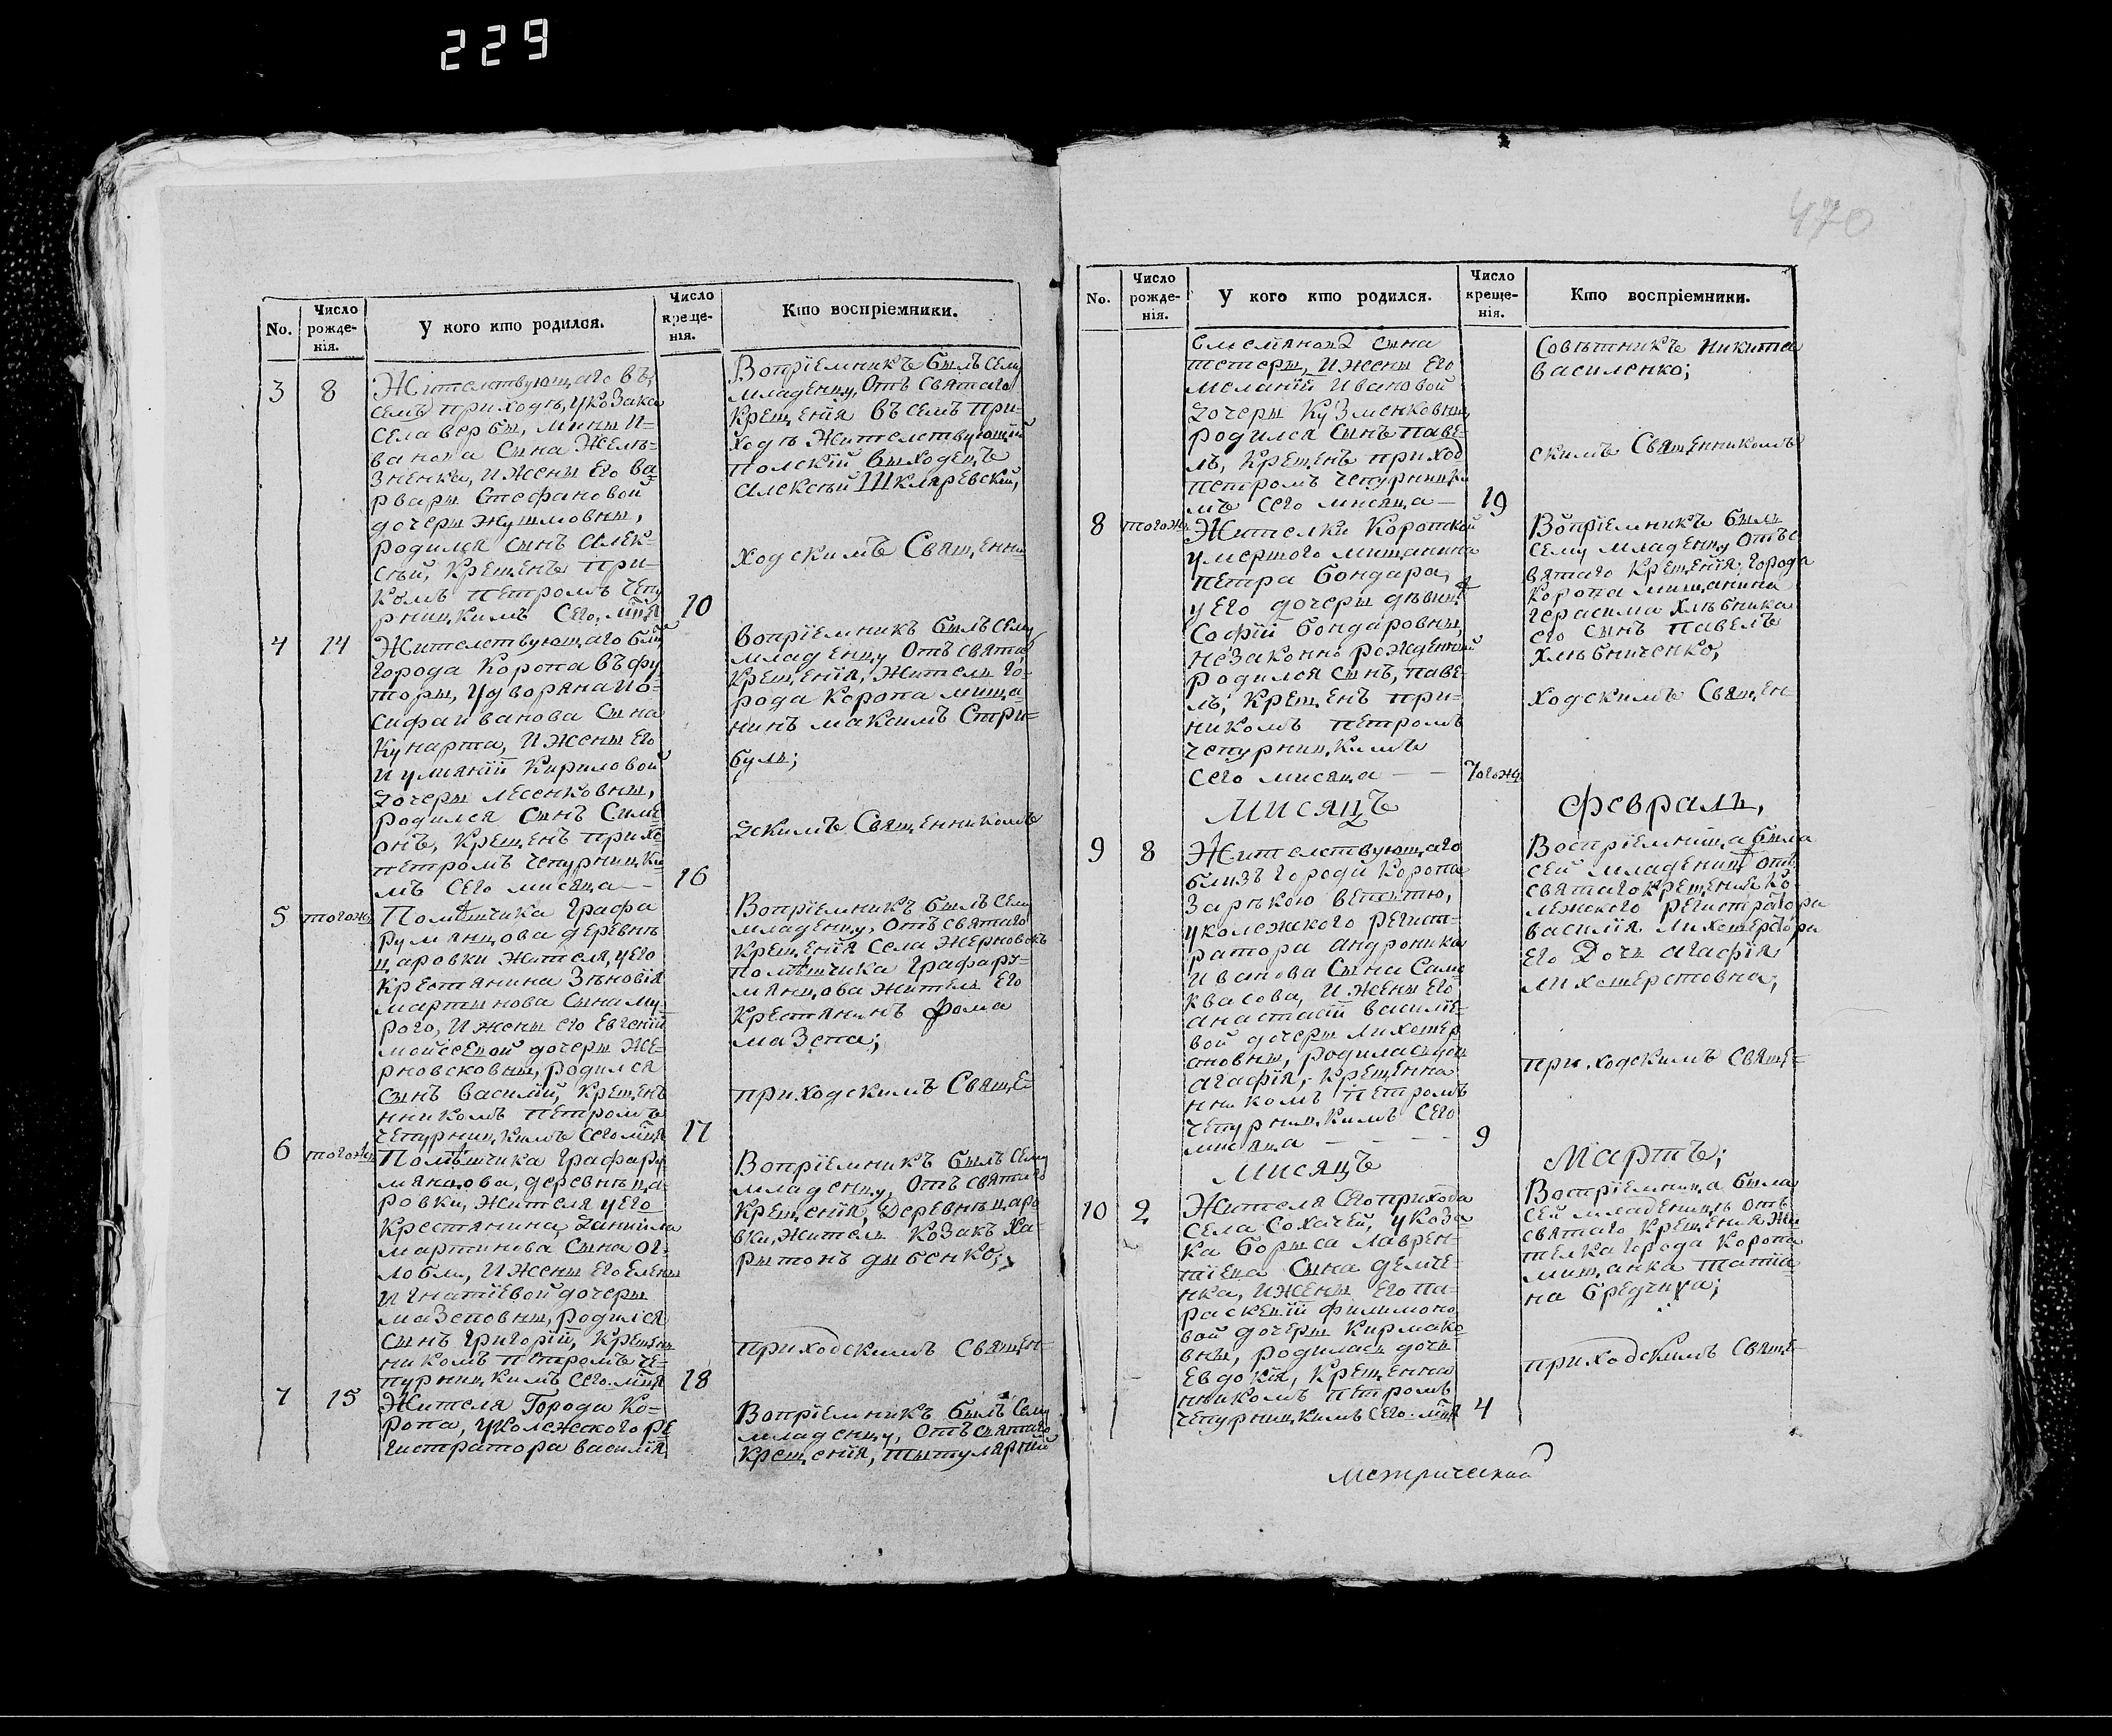 229
470
No.
Число рожде-нія.
У кого кто родился.
Число креще-нія.
Кто воспріемники.
3
8
Жителствующаго въ
семъ приходѣ, у козака
села вербы, мины И-
ванова сына Желѣ-
зненка, И жены Его ва
рвары Стефановой
дочеры
родился сынъ Алек-
сѣй, Крещенъ при-
комъ петромъ чепу
рницкимъ Сего мця
10
Вопріемникъ былъ сему
младенцу, Отъ святаго
Крещенія въ семъ при-
ходѣ Жителствующій
полскій выходецъ
Алексѣй Шкляревскій,
ходскимъ Священни
4
14
Жителствующаго близ
города Коропа въ фу-
торы, у дворяна Ио-
сифа иванова Сына
Кунарта, И жены Его
Иулианіи Кириловой
дочеры лесенковны,
родился Сынъ Симе
онъ, Крещенъ прихо
петромъ чепурницки
мъ Сего мисяца —
16
вопріемникъ былъ сему
младенцу Отъ свята
Крещенія, Житель го-
рода Коропа мища
нинъ максимъ Стри-
буль;
дскимъ Священникомъ
5
тогожъ
Помѣшчика Графа
румянцова деревнѣ
царовки жителя, у Его
Крестянина Зѣновія
мартынова Сына му
рого, И жены его Евгеніи
мойсеевой дочеры же-
рновсковны, родился
сынъ василій, Крещенъ
нникомъ петромъ
чепурницкимъ Сего мця
17
Вопріемникъ былъ Сему
младенцу, Отъ святаго
Крещенія Села Жерновокъ
помѣшчика Графа ру-
мянцова житель Его
Крестянинъ фома
маЗепа;
приходскимъ Свяще-
6
тогожъ
Помѣшчика Графа ру
мянцова, деревнѣ ца-
ровки, Жителя у Его
Крестянина, Даниила
мартинова Сына ог-
лобли, И жены Его Елены
Игнатіевой дочеры
маЗеповны, родился
сынъ Григорій, Крещен
никомъ петромъ че-
пурницкимъ Сего мця
18
Вопріемникъ былъ Сему
младенцу, Отъ святаго
Крещенія, Деревнѣ царо
вки, Житель Козакъ Ха-
рытонъ дыбенко;
приходскимъ Священ-
7
15
Жителя Города Ко-
ропа, у колежского ре
гистратора василія
Вопріемникъ былъ Сему
младенцу, Отъ святаго
Крещенія, тытулярній
No.
Число рожде-нія.
У кого кто родился.
Число креще-нія.
Кто воспріемники.
сына
тетеры, И жены Его
меланіи Ивановой
дочеры КуЗменковны,
родился Сынъ паве-
лъ, Крещенъ приход
петромъ чепурницки
мъ Сего мисяца —
19
Совѣтникъ никита
василенко;
скимъ Священникомъ
8
тогожъ
Жителки Коропской
умершого мищанина
петра бондара,
у Его дочеры дѣвиц
Софіи бондаровны,
неЗаконно рожденній
родился сынъ, паве-
лъ, Крещенъ при-
никомъ петромъ
чепурницкимъ
Сего мисяца — —
Тогожъ
Вопріемникъ былъ
сему младенцу Отъ с
вятаго Крещенія Города
Коропа мищанина
герасима хлѣбника
его сынъ павелъ
хлѣбниченко;
ходскимъ Священ-
Мисяцъ
февраль,
9
8
Жителствующаго
близъ города Коропа
за рѣкою
у колежского регист-
ратора андроника
Иванова Сына Само
квасова, И жены Его
анастасіи василіе-
вой дочеры Лихошер
стовны, родилась дочь
агафія, Крещенна
нникомъ петромъ
чепурницкимъ Сего
мисяца — — —
9
Воспріемница была
сей младеници отъ
святаго Крещения Ко-
лежского регистратора
василія Лихошерстова
его Дочь агафія
лихошерстовна;
приходскимъ Свяще-
Мисяцъ
Мартъ;
10
2
Жителя Сего прихода
села Сохачей, у Коза
ка бориса Лаврен-
тіева Сына демче-
нка, И жены Его па-
раскевіи филимоно
вой дочеры Кирмако-
вны, родилась дочь
Евдокія, Крещенна
нникомъ петромъ
чепурницкимъ Сего мця
4
Воспріемница была
сей младеницѣ отъ
святаго Крещения Жи
телка города Коропа
мищанка татия
на бредчиха;
приходскимъ Свяще-
Метрическая